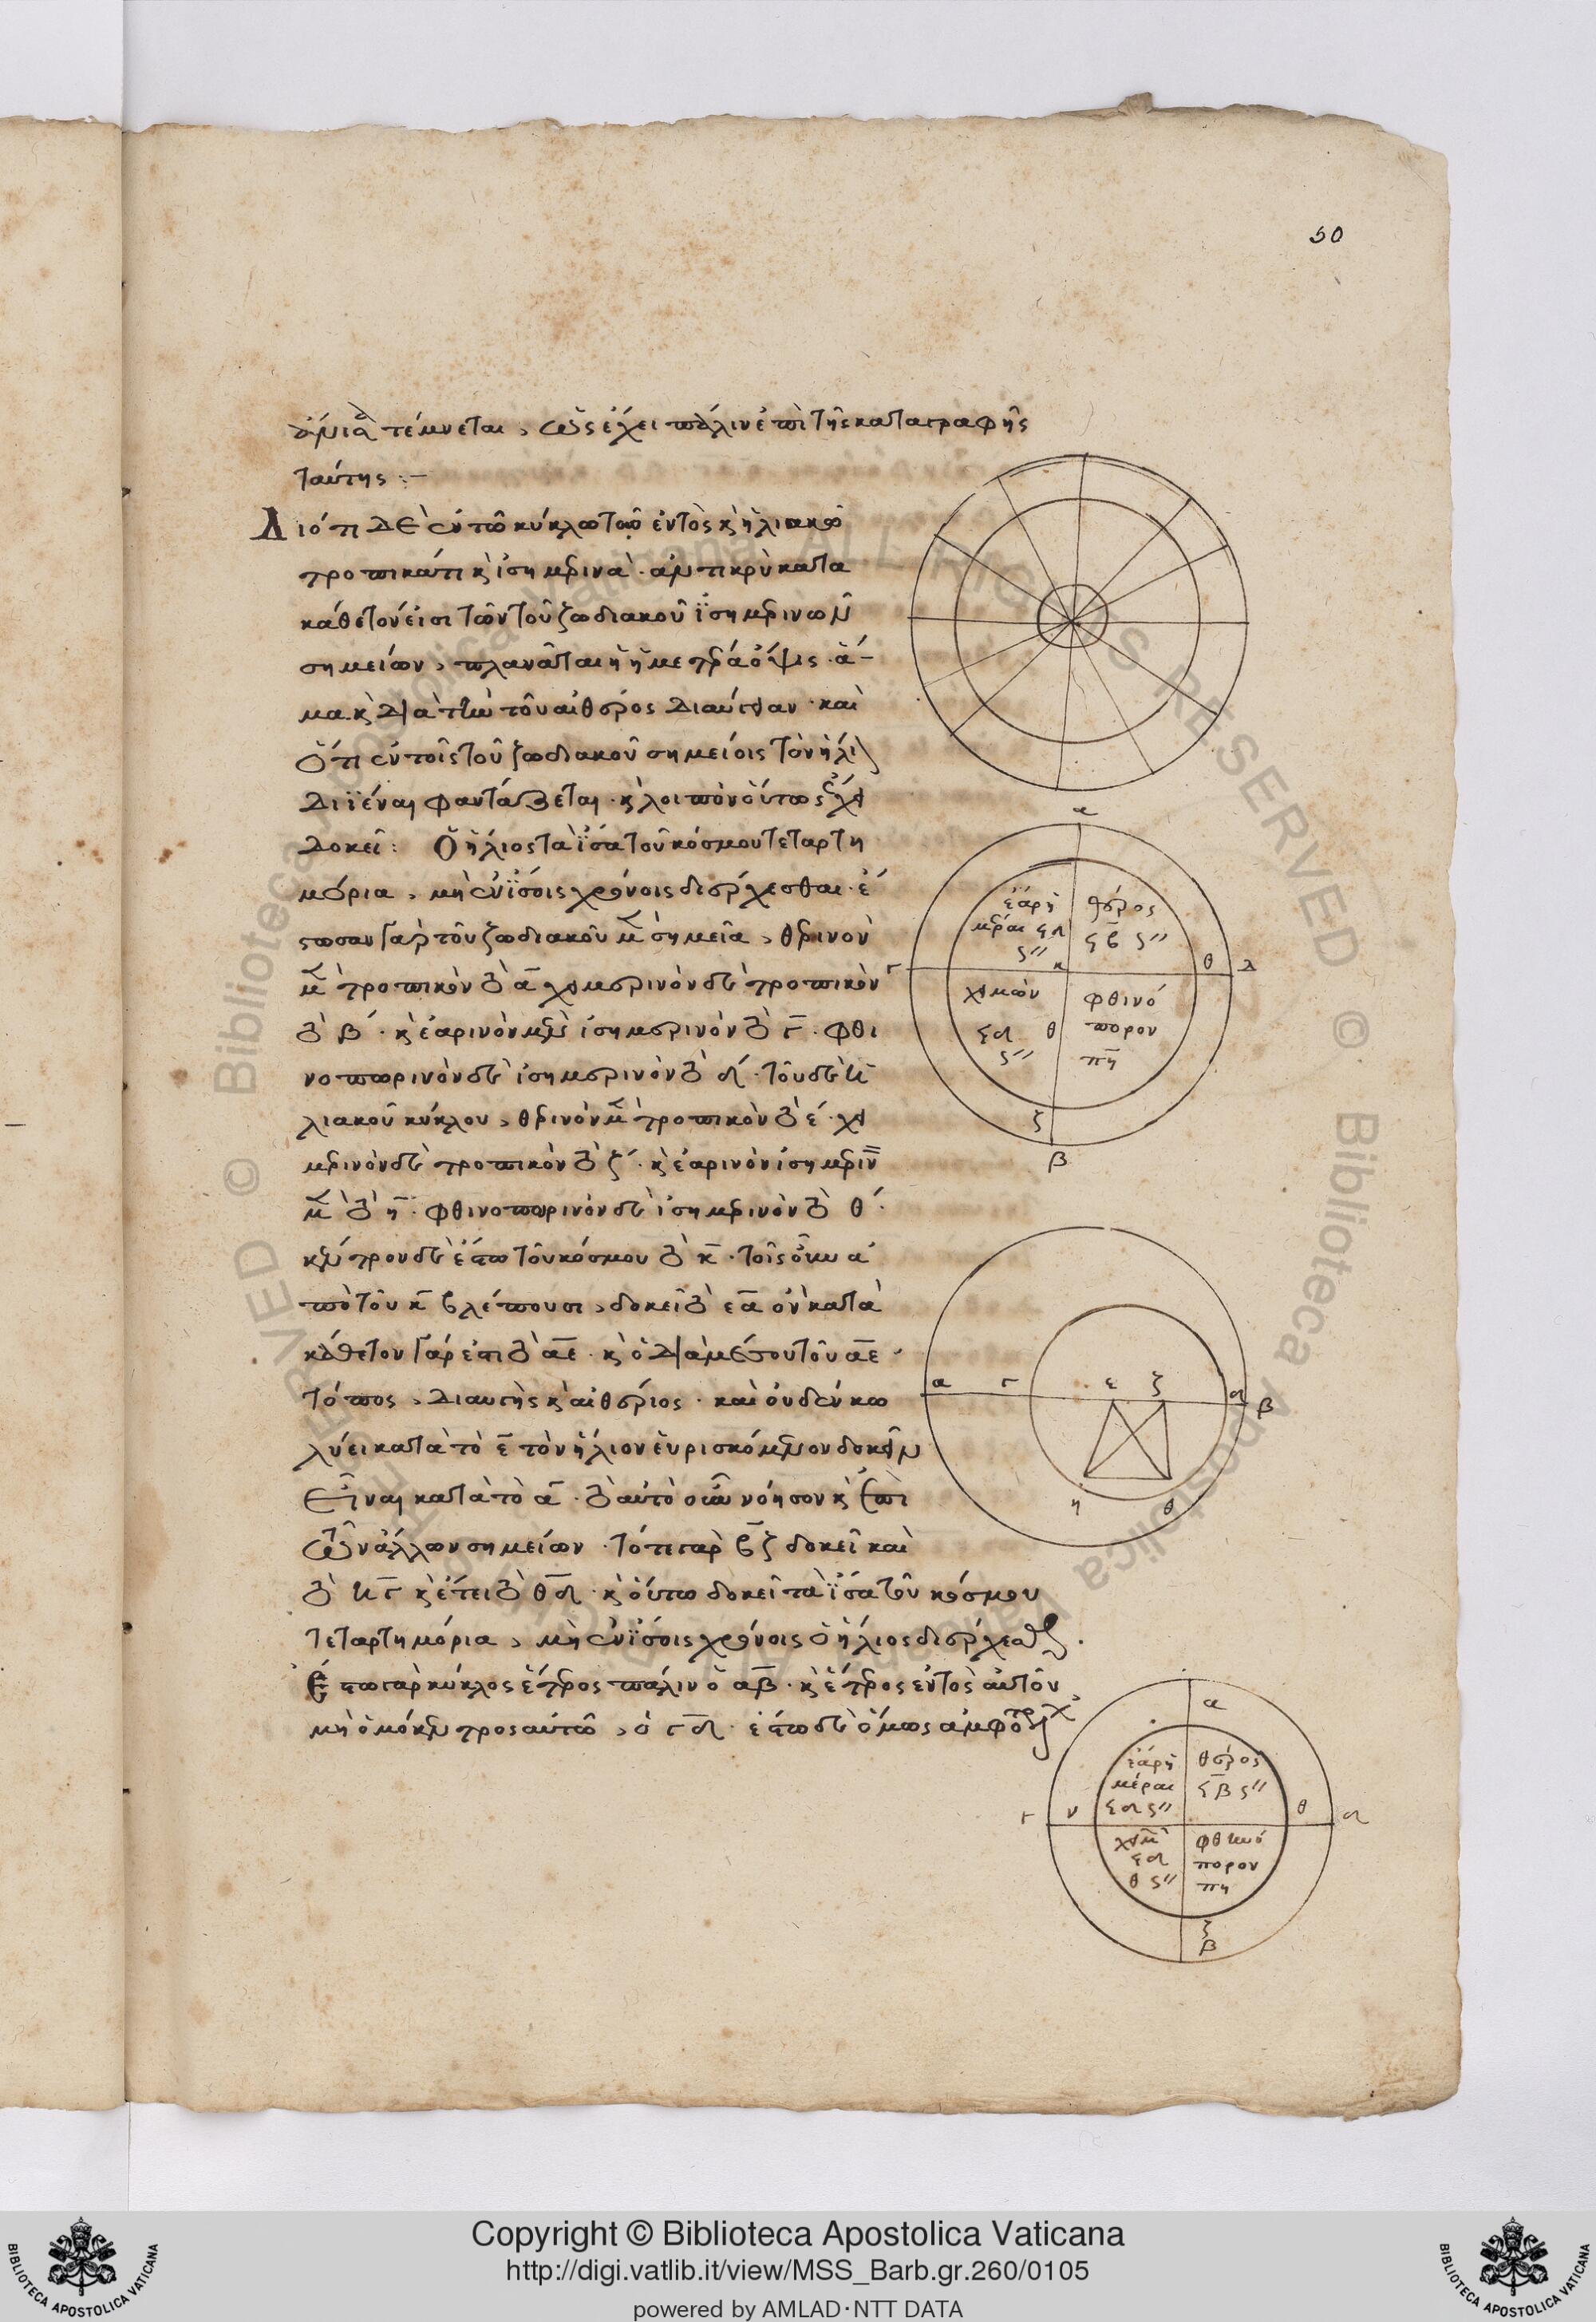 50
ἄνισα τέμνεται, ὡς ἔχει πάλιν ἐπὶ τῆς καταγραφῆς
ταύτης :—
Διότι δὲ ἐν τῷ κύκλῳ τῷ ἐντὸς κ ἡλιακῷ
τροπικά τι κ ἰσημερινὰ. ἀντικρὺ κατα
κάθετόν εἰσι τῶν τοῦ ζωδιακοῦ ἰσημερινῶν
σημείων, πλανᾶται ἡ ἡμετέρα ὄψις. ἅ-
μα κ διὰ τὴν τοῦ αἰθέρος διαύγειαν. καὶ
ὅτι ἐν τοῖς τοῦ ζωδιακοῦ σημείοις τὸν ἥλι
διϊέναι φαντάζεται. κ λοιπὸν οὕτως ἔχειν
δοκεῖ: Ὁ ἥλιος τὰ ἴσα τοῦ κόσμου τεταρτη
μόρια, μὴ ἐν ἴσοις χρόνοις διέρχεσθαι. ἔ
στωσαν γὰρ τοῦ ζωδιακοῦ μὲν σημεῖα, θερινὸν
μὲν τροπικὸν τὸ α χειμερινὸν δὲ τροπικὸν
τὸ β. κ ἐαρινὸν μὲν ἰσημερινὸν τὸ γ. φθι
νοπωρινὸν δὲ ἰσημερινὸν τὸ δ. τοῦ δὲ ἡ
λιακοῦ κύκλου, θερινὸν μὲν τροπικὸν τὸ ε. χει
μερινὸν δὲ τροπικὸν τὸ ζ. κ ἐαρινὸν ἰσημερινὸν
μὲν τὸ η. φθινοπωρινὸν δὲ ἰσημερινὸν τὸ θ.
κέντρον δὲ ἔστω τοῦ κόσμου τὸ κ. τοῖς οὖν ἀ
πὸ τοῦ κ βλέπουσι, δοκεῖ τὸ εα ὂν κατὰ
κάθετον γάρ ἐστι τὸ αε. κ ὁ διὰ μέσου τοῦ αε
τόπος, διαυγὴς κ αἰθέριος. καὶ οὐδὲν κω
λύει κατὰ τὸ ε τὸν ἥλιον εὑρισκόμενον δοκεῖν
εἶναι κατὰ τὸ α. τὸ αὐτὸ οὖν νόησον κ ἐπὶ
τῶν ἄλλων σημείων. τό τι γὰρ βζ δοκεῖ καὶ
τὸ ηγ κ ἔτει τὸ θδ. κ οὕτω δοκεῖ τὰ ἴσα τοῦ κόσμου
τεταρτημόρια, μὴ ἐν ἴσοις χρόνοις ὁ ἥλιος διέρχεσθαι.
Ἔστω γὰρ κύκλος ἕτερος πάλιν ὁ αβ. κ ἕτερος ἐντὸς αὐτοῦ
μὴ ὁμόκεντρος αὐτῷ, ὁ γδ. ἔστω δὲ ὅμως
α
ἐάρη θέρος
μέραι ϟδ ϟβ ς′′
ς′′
γ κ θ δ
χειμὼν φθινό
ϟδ θ πορον
ς′′ πη
ζ
β
α γ ε ζ δ β
η θ
α
ἐάρη θέρος
μέραι ϟβ ς′′
γ ν ϟδ ς′′ θ δ
χειμ φθινό
ϟδ πορον
θ ς′′ πη
ζ
β
Copyright © Biblioteca Apostolica Vaticana
http://digi.vatlib.it/view/MSS_Barb.gr.260/0105
powered by AMLAD·NTT DATA
BIBLIOTECA APOSTOLICA VATICANA
BIBLIOTECA APOSTOLICA VATICANA